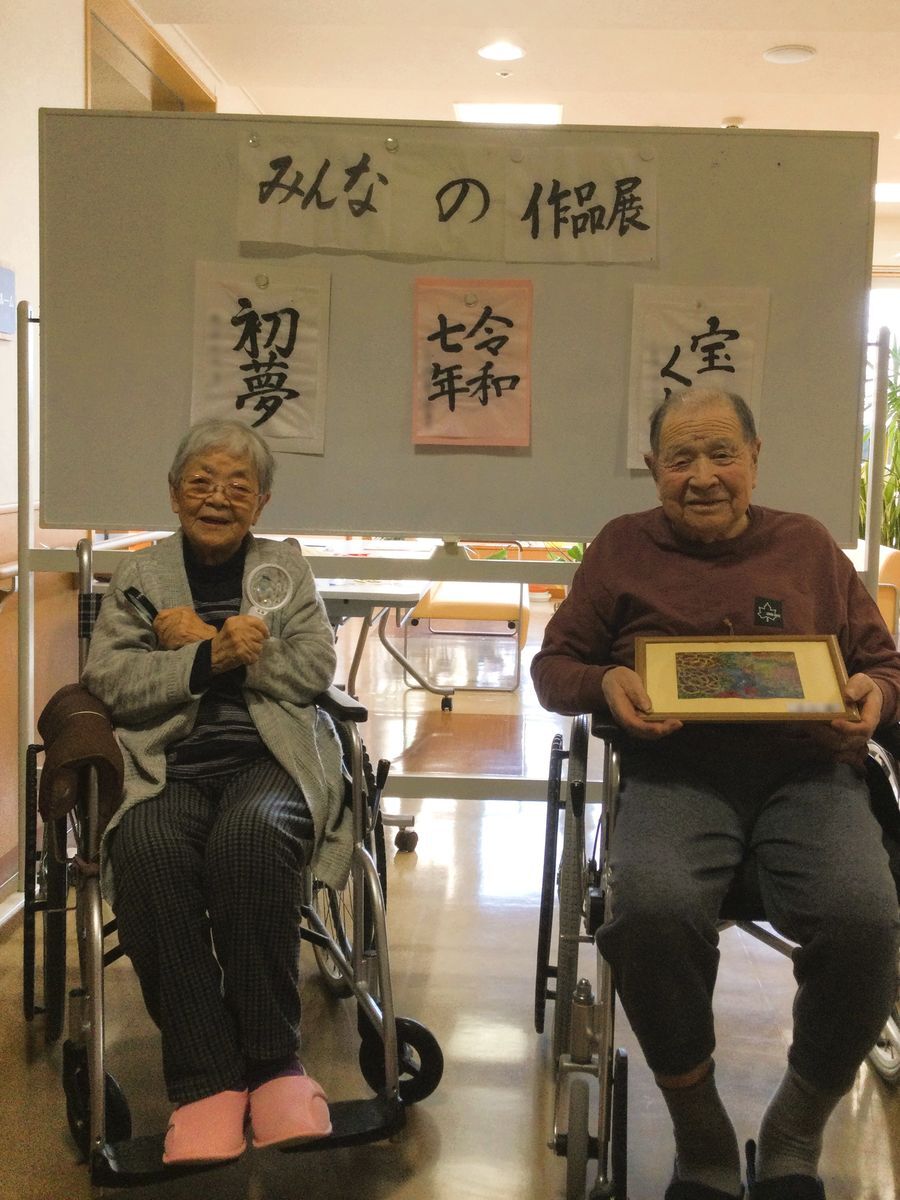 みんなの作品展
初夢
令和
七年
宝